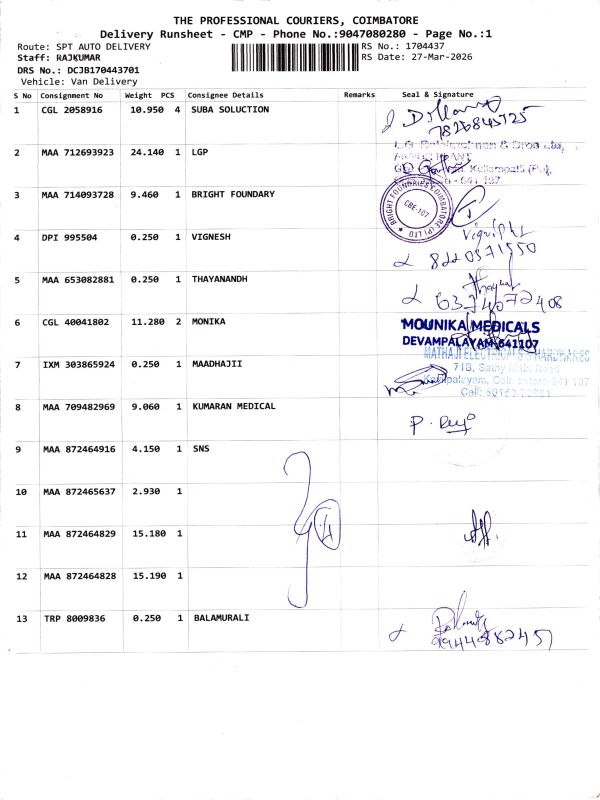 THE PROFESSIONAL COURIERS, COIMBATORE
Delivery Runsheet - CMP - Phone No.:9047080280 - Page No.:1
Route: SPT AUTO DELIVERY RS No.: 1704437
Staff: RAJKUMAR RS Date: 27-Mar-2026
DRS No.: DCJB170443701
Vehicle: Van Delivery
S No Consignment No Weight PCS Consignee Details Remarks Seal & Signature
1 CGL 2058916 10.950 4 SUBA SOLUCTION
7826845725
2 MAA 712693923 24.140 1 LGP
3 MAA 714093728 9.460 1 BRIGHT FOUNDARY
BRIGHT FOUNDRIES COIMBATORE (P) LTD
CBE-107
4 DPI 995504 0.250 1 VIGNESH
8220571550
5 MAA 653082881 0.250 1 THAYANANDH
6374072408
6 CGL 40041802 11.280 2 MONIKA MOUNIKA MEDICALS
DEVAMPALAYAM-641107
7 IXM 303865924 0.250 1 MAADHAJII
MATHAJI ELECTRICALS & HARDWARES
71B, Sathy Main Road
8 MAA 709482969 9.060 1 KUMARAN MEDICAL
9 MAA 872464916 4.150 1 SNS
10 MAA 872465637 2.930 1
4
11 MAA 872464829 15.180 1
12 MAA 872464828 15.190 1
13 TRP 8009836 0.250 1 BALAMURALI
9944882457